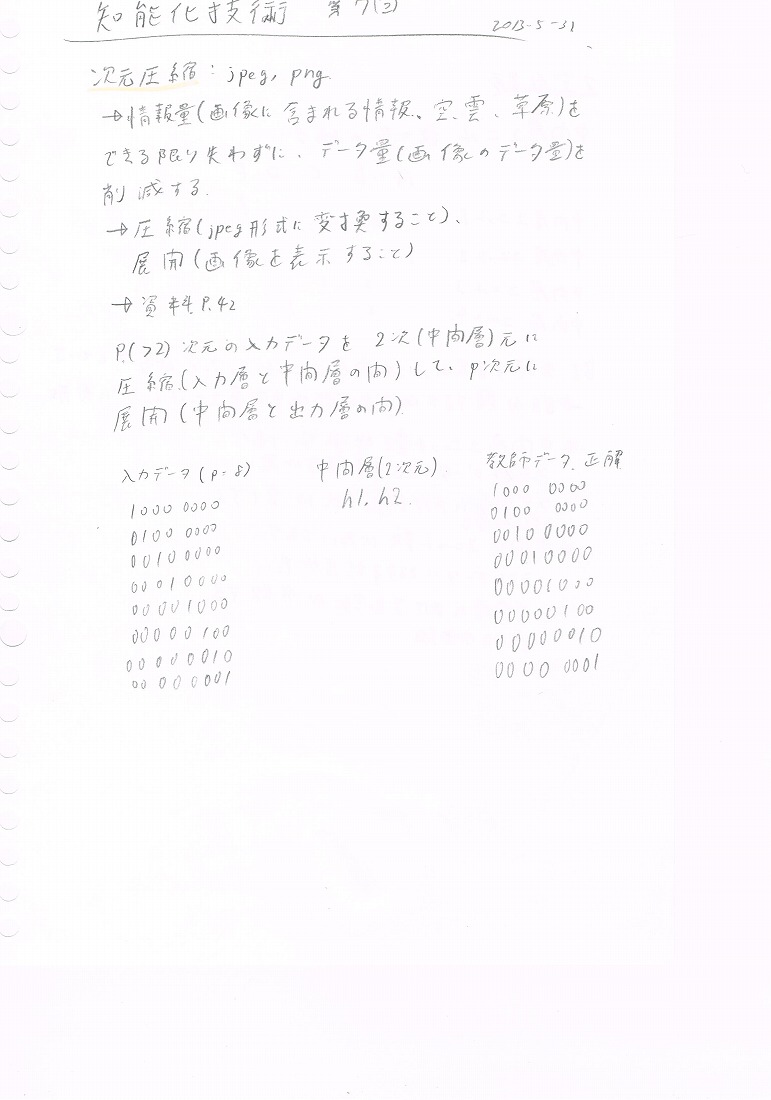 知能化技術 第7回
2013-5-31
次元圧縮: jpeg, png.
→情報量(画像に含まれる情報、空、雲、草原)を
できる限り失わずに、データ量(画像のデータ量)を
削減する.
→圧縮(jpeg形式に変換すること)、
展開(画像を表示すること)
→資料P.42
P.(>2)次元の入力データを2次(中間層)元に
圧縮.(入力層と中間層の間)して、p次元に
展開(中間層と出力層の間).
入力データ(p=8) 中間層(2次元). 教師データ、正解
h1, h2.
1000 0000 1000 0000
0100 0000 0100 0000
0010 0000 0010 0000
00010000 00010000
00001000 00001000
00000100 00000100
00000010 00000010
00000001 0000 0001